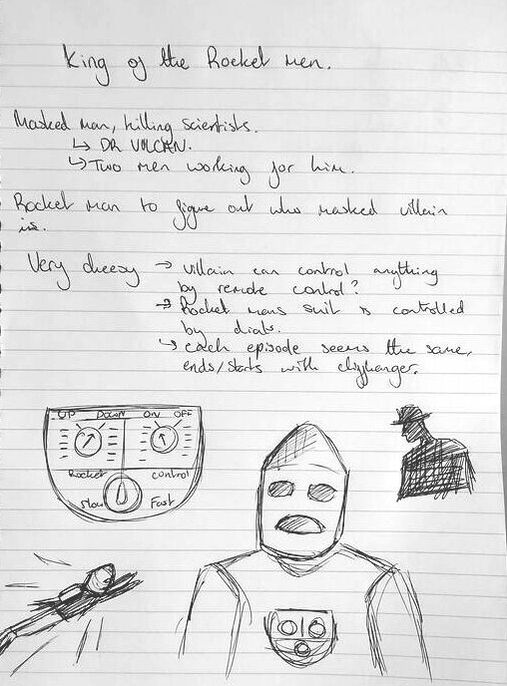 King of the Rocket Men.
Masked man, killing scientists.
↳ DR VULCAN.
↳ Two men working for him.
Rocket man to figure out who masked villain
is.
Very cheesy → villain can control anything
by remote control?
→ Rocket mans suit is controlled
by dials.
↳ each episode seems the same,
ends/starts with cliffhanger.
UP DOWN ON OFF
Rocket control
Slow Fast